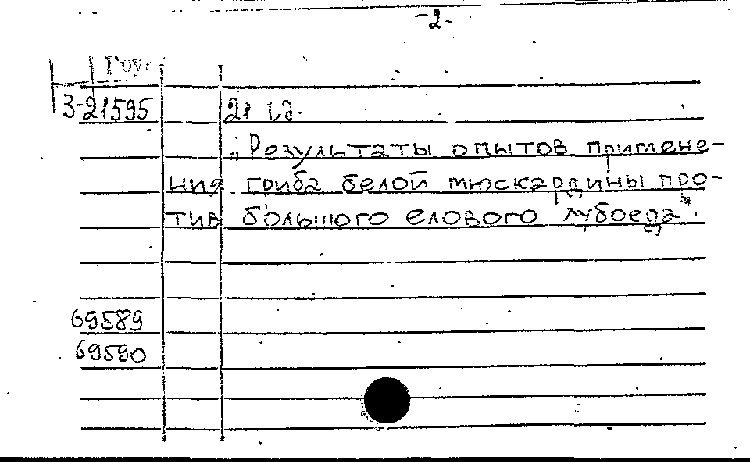 -2-
3-21595 21 с.
„Результаты опытов примене-
ния гриба белой мюскардины про-
тив большого елового лубоеда".
69589
69590